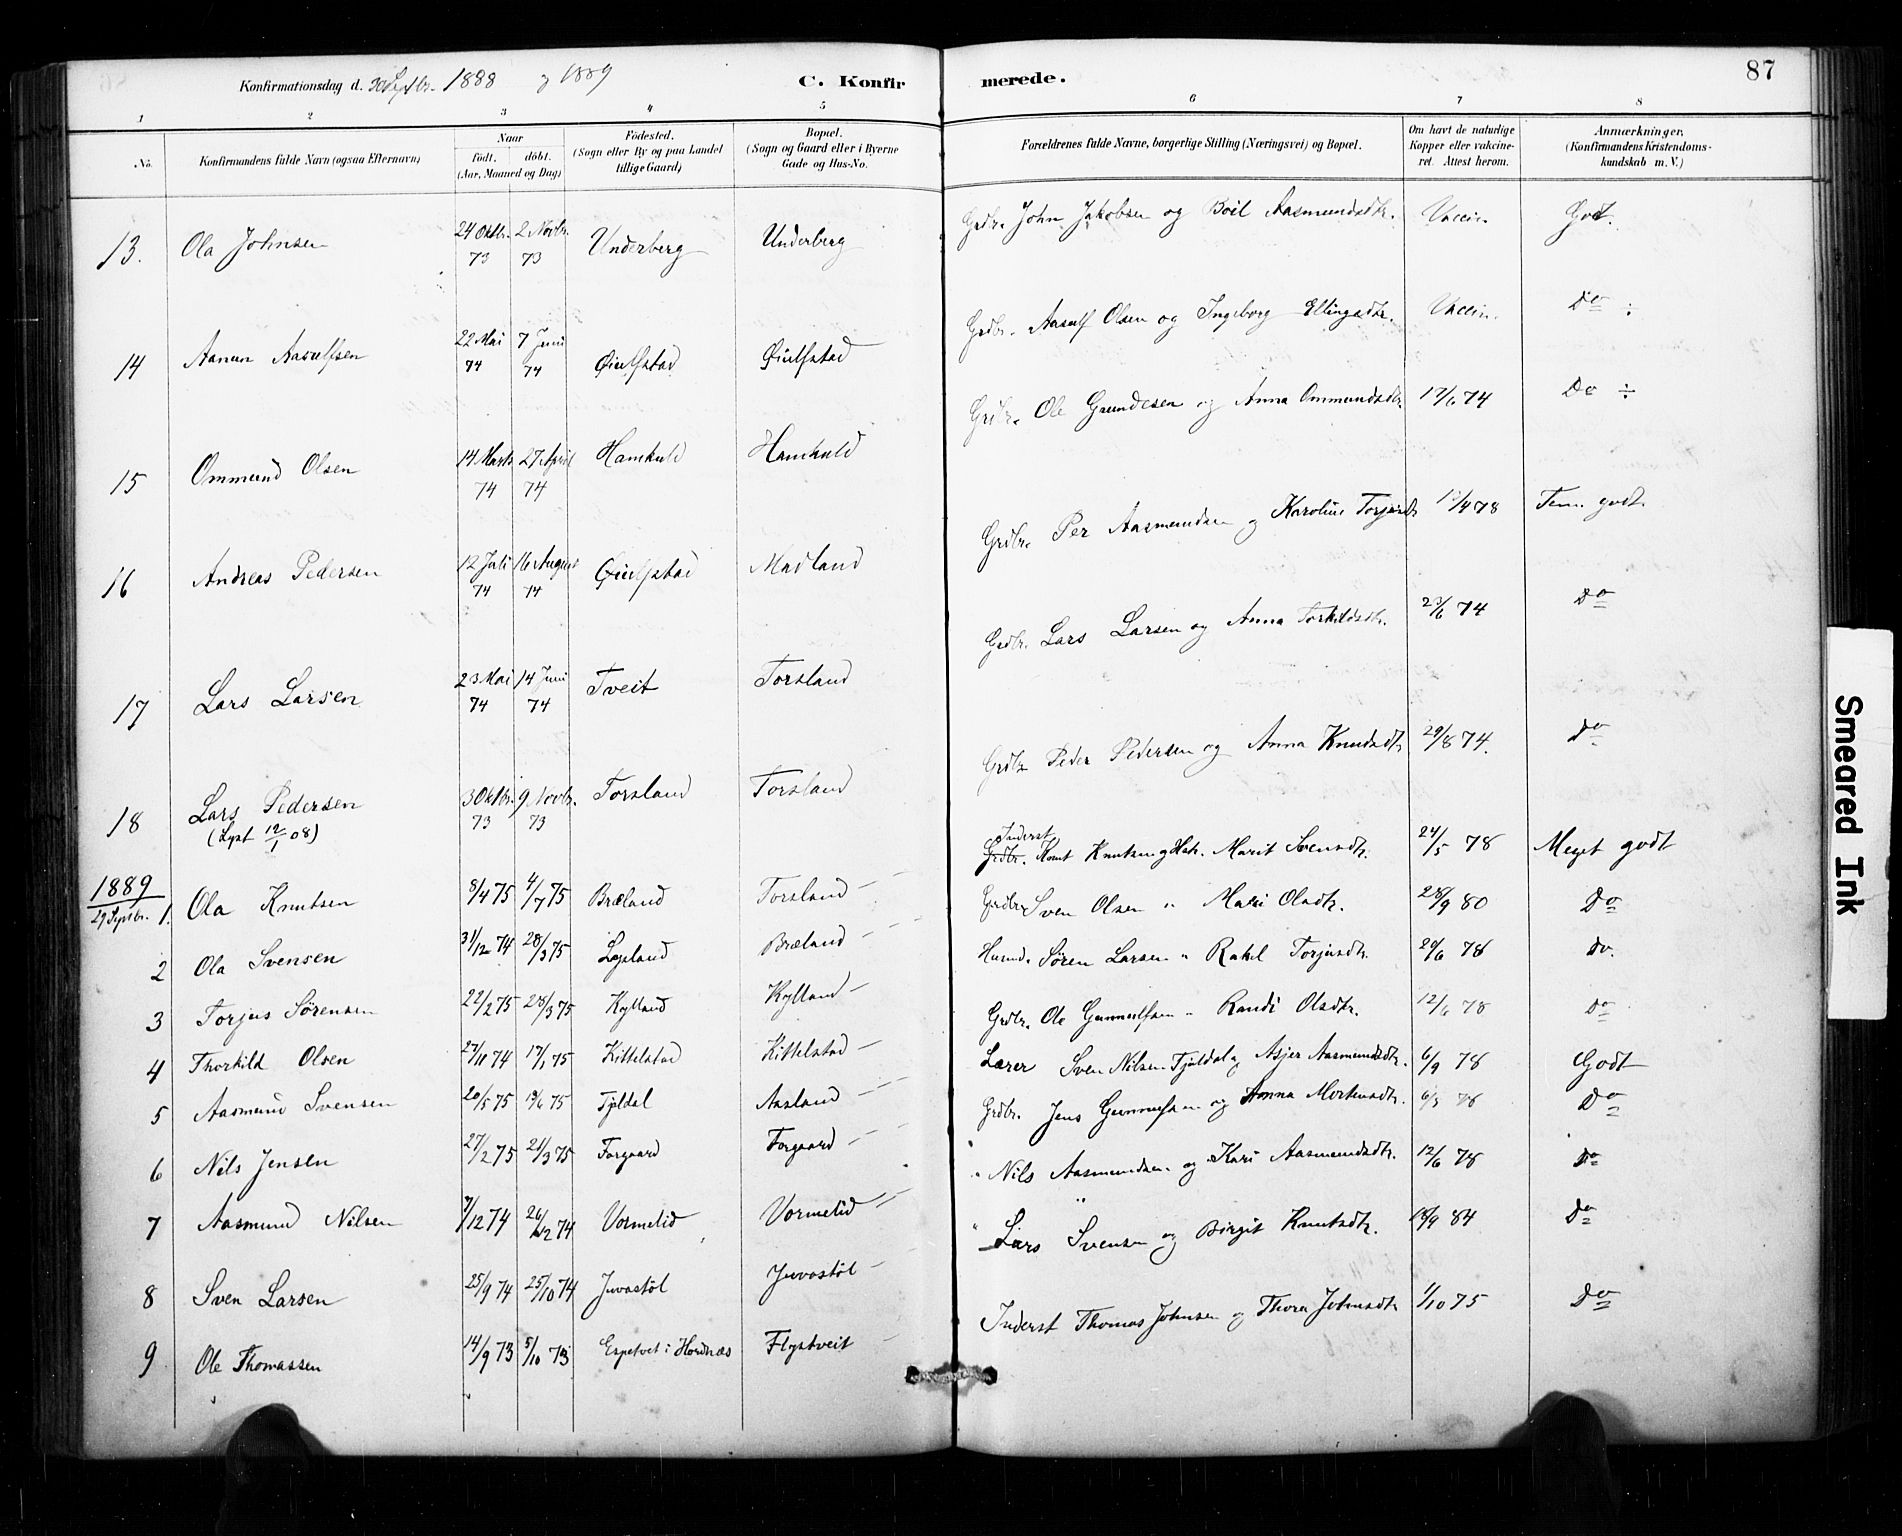 Konfirmationsdag d. 30 Septbr. 1888 og 1889 C. Konfirmerede. 87
1 2 3 4 5 6 7 8
No. Konfirmandens fulde Navn (ogsaa Efternavn) Naar født. døbt. (Aar, Maaned og Dag) Fødested. (Sogn eller By og paa Landet tillige Gaard) Bopæl. (Sogn og Gaard eller i Byerne Gade og Hus-No. Forældrenes fulde Navne, borgerlige Stilling (Næringsvei) og Bopæl. Om havt de naturlige Kopper eller vakcineret. Attest herom. Anmærkninger. (Konfirmandens Kristendomskundskab m. V.)
13. Ola Johnsen 24 Oktbr. 73 2 Novbr. 73 Underberg Underberg Grdbr. John Jakobsen og Boil Aasmundsdtr. Vaccin. Godt.
14 Aanun Aasulfsen 22 Mai 74 7 Juni 74 Øiulfstad Øiulfstad Grdbr. Aasulf Olsen og Ingeborg Ellingsdtr. Vaccin. Do ÷
15 Ommund Olsen 14 Marts 74 27 April 74 Hamkuld Hamkuld Grdbr. Ole Grundesen og Anna Ommundsdtr. 17/6 74 Do ÷
16 Andreas Pedersen 12 Juli 74 16 August 74 Øiulfstad Madland Grdbr. Per Aasmundsen og Karoline Torjusdtr. 12/4 78 Tem. godt.
17 Lars Larsen 23 Mai 74 14 Juni 74 Tveit Torsland Grdbr. Lars Larsen og Anna Torkildsdtr. 23/6 74 Do
18 Lars Pedersen 3 Oktbr. 73 9 Novbr. 73 Torsland Torsland Grdbr. Peder Pedersen og Anna Knudsdtr. 29/8 74. Do
(Lyst 12/1 08)
1889
29 Septbr. 1. Ola Knutsen 8/4 75 4/7 75 Bræland Torsland Inderst Grdbr. Knut Knutsen og Marit Svensdtr. 24/5 78 Meget godt
2 Ola Svensen 31/12 74 28/3 75 Lageland Bræland Grdbr. Sven Olsen " Mari Olsdtr. 28/9 80 Do
3 Torjus Sørensen 22/2 75 28/3 75 Kylland Kylland Husmd. Søren Larsen " Rakel Torjusdtr. 29/6 78 Do.
4 Thorkild Olsen 27/11 74 17/1 75 Kittelstad Kittelstad Grdbr. Ole Gunnulfsen " Randi Olsdtr. 12/6 78 Do
5 Aasmund Svensen 20/5 75 19/6 75 Fjeldal Aasland Lærer Sven Nilsen Fjeldal og Asjer Aasmundsdtr. 6/9 78 Godt
6 Nils Jensen 27/2 75 21/3 75 Forgaard Forgaard Grdbr. Jens Gunnulfsen og Anna Mortensdtr. 6/5 78 Do
7 Aasmund Nilsen 7/12 74 26/12 74 Vormelid Vormelid " Nils Aasmundsen og Kari Aasmundsdtr. 12/6 78 Do
8 Sven Larsen 25/9 74 25/10 74 Juvastøl Juvastøl " Lars Svensen og Birgit Knutsdtr. 18/9 84 Do
9 Ole Thomassen 14/9 73 5/10 73 Espetvet i Hordnæs Flystveit Inderst Thomas Johnsen og Thora Johnsdtr. 1/10 75 Do
Smeared Ink